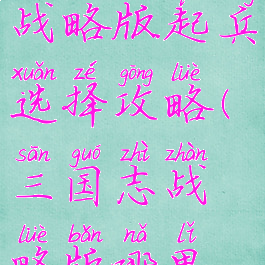 战略版起兵
xuǎn zé gōng lüè
选择攻略(
sān guó zhì zhàn
三国志战
lüè bǎn nǎ lǐ
略版哪里